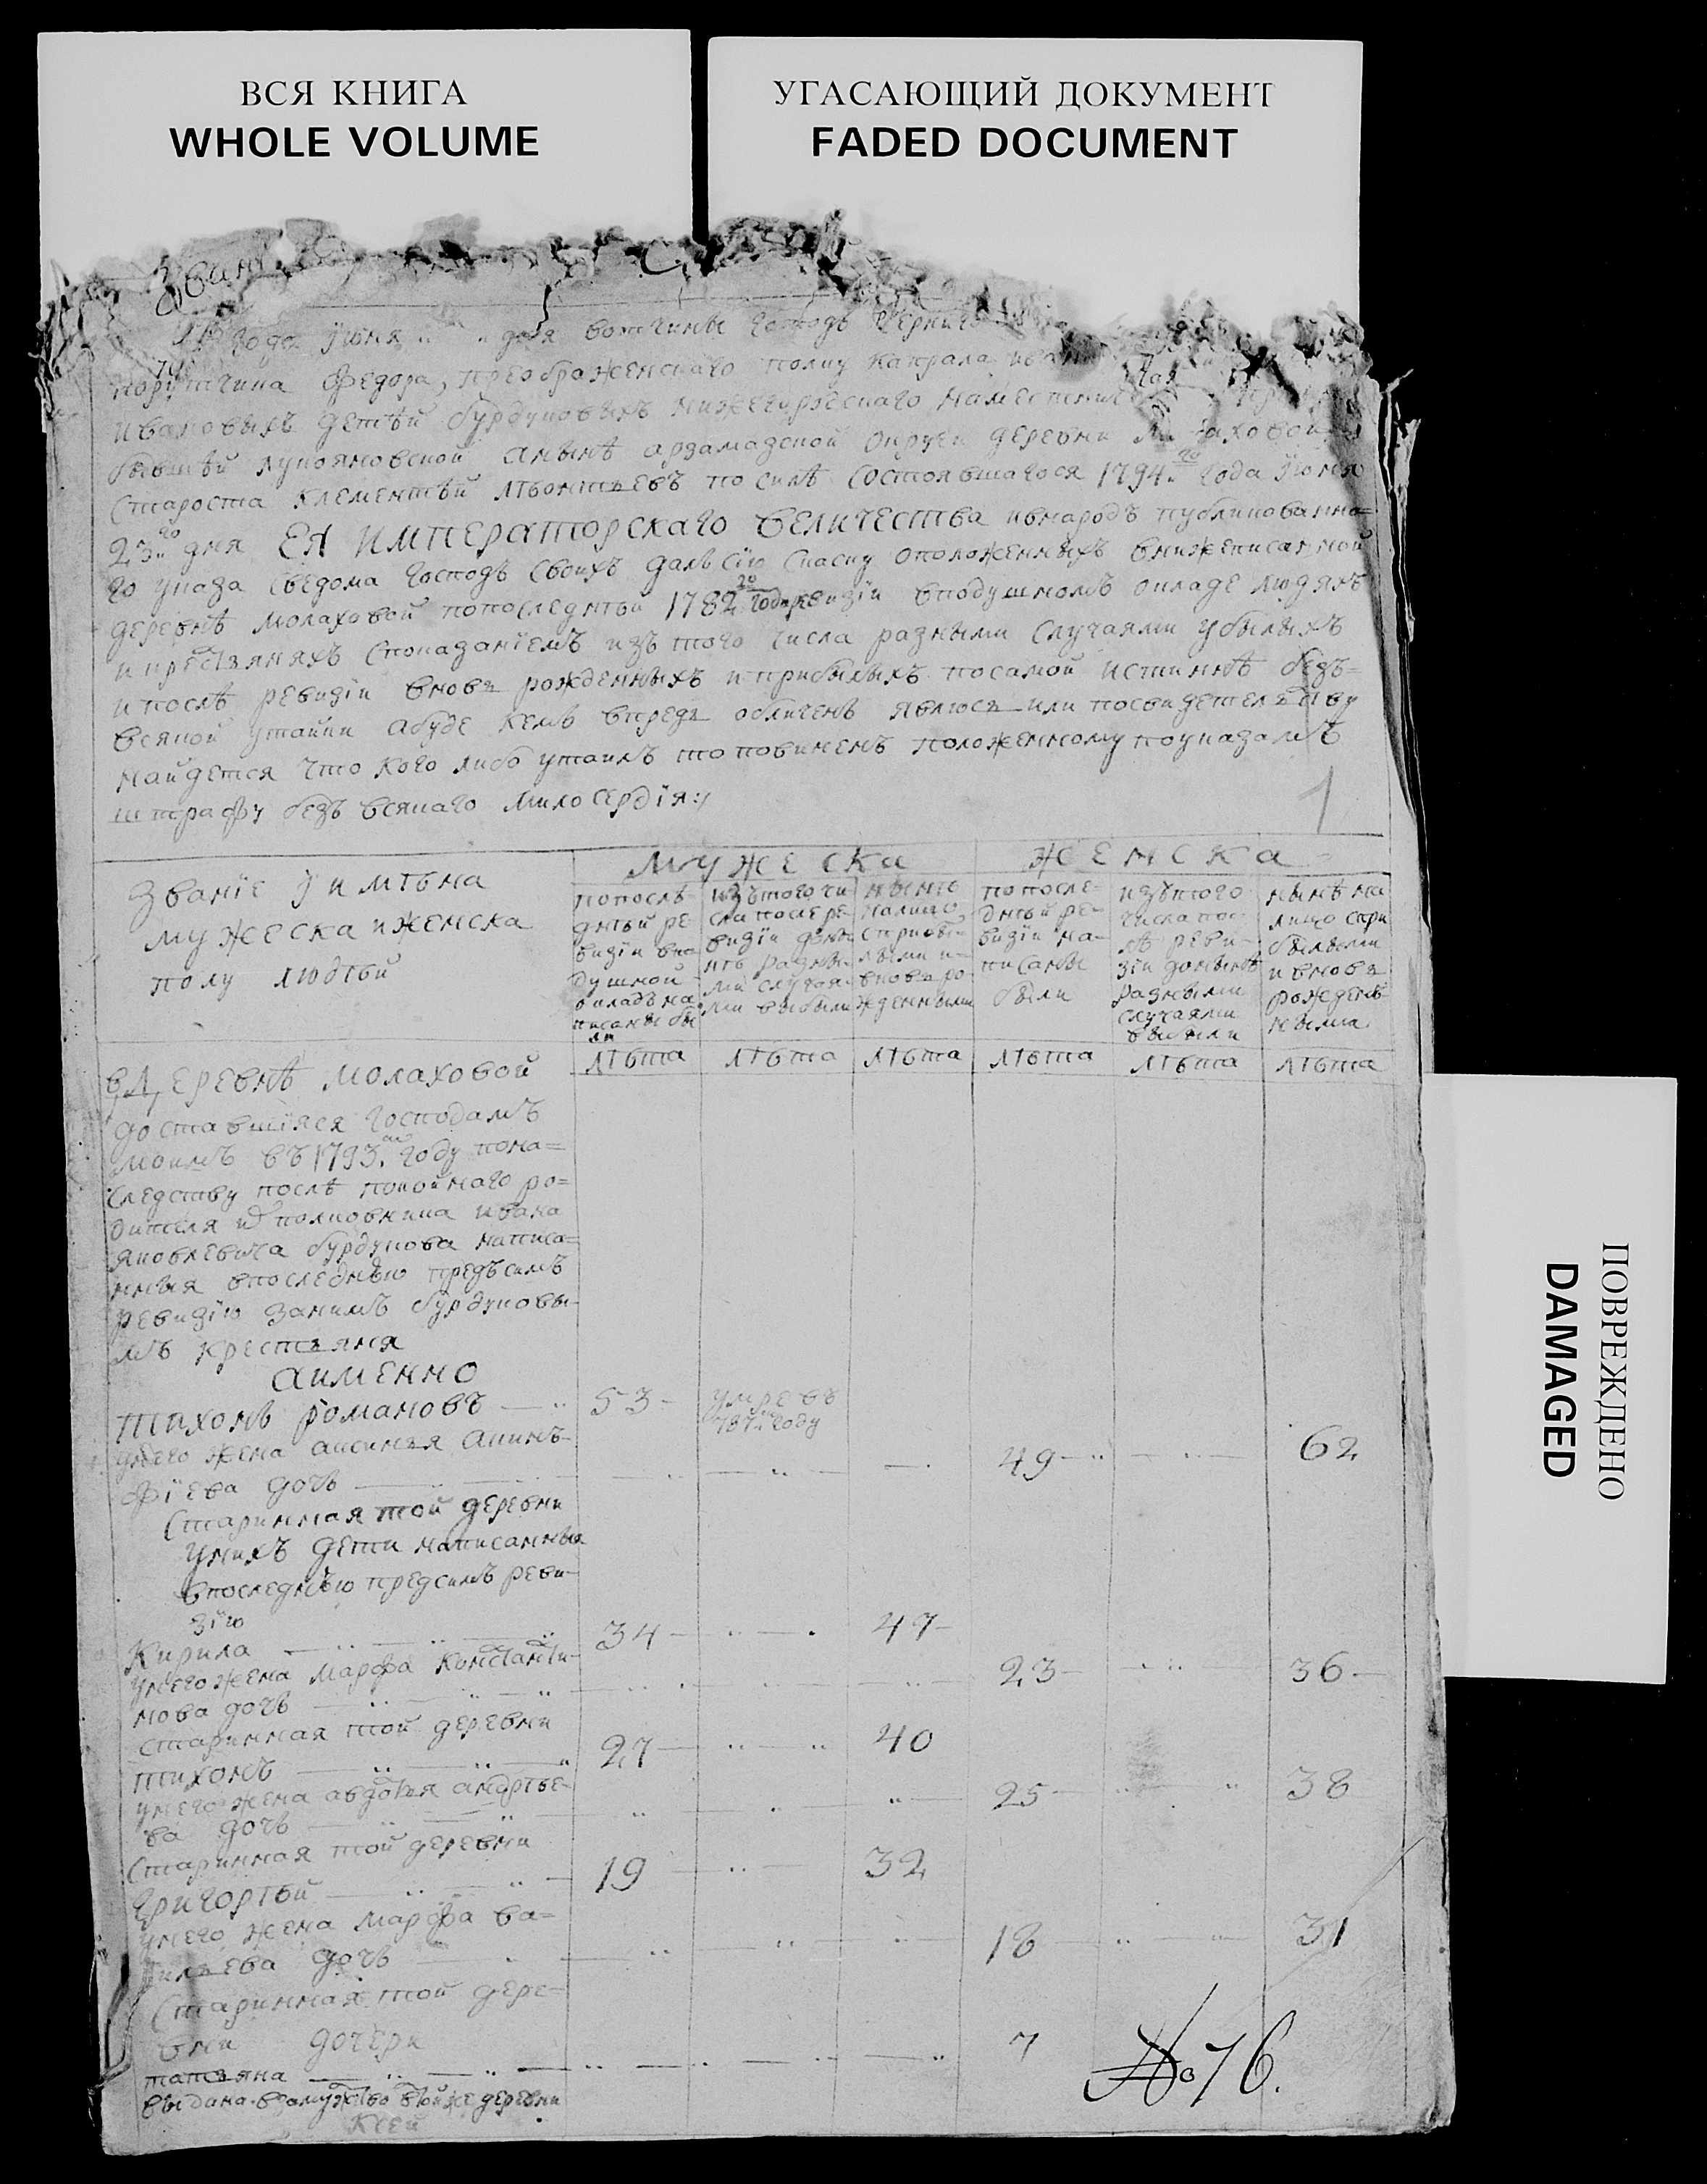 ВСЯ КНИГА
WHOLE VOLUME
УГАСАЮЩИЙ ДОКУМЕНТ
FADED DOCUMENT
года Июня дня вотчины господъ
порутчика Федора, преображенскаго полку капрала
Ивановыхъ детѣй бурдуковыхъ нижегородскаго
бывшѣй лукояновской анынѣ арзамазской округи деревни
Староста клементѣй лѣонтьевъ по силѣ состоявшагося 1794.го года Июня
23.го дня ЕЯ ИМПЕРАТОРСКАГО ВЕЛИЧЕСТВА ивнародъ публикованна=
го указа сведома господъ своихъ далъ сїю скаску оположенныхъ внижеписанной
деревнѣ молаховой попоследнѣй 1782го году ревизїи вподушномъ окладе людяхъ
и крестьяняхъ споказанїемъ изъ того числа разными случаями убылыхъ
и послѣ ревизїи вновь рожденныхъ иприбылыхъ посамой истиннѣ безъ=
всякой утайки абуде кемъ впредь обличенъ явлюсь или посвидетельству
найдется что кого либо утаилъ то повиненъ положенному поуказамъ
штрафу безъ всякаго милосердїя:/
1
мужеска
женска
званїе И имѣна
мужеска иженска
полу людѣй
попослѣ-
днѣй ре
визїи впо
душной
окладъ на
писаны бы
ли
изътого чи-
сла после ре-
визїи доны
нѣ разны-
ми случая-
ми выбыли
нынѣ
налицо
сприбы-
лыми и-
вновь ро-
жденными
по после-
днѣй ре-
визїи на-
писаны
были
изътого
числа пос-
лѣ реви-
зїи донынѣ
разными
случаями
выбыли
нынѣ на
лицо спри
былыми
ивновь
рожден
ными
лѣта лѣта лѣта лѣта лѣта лѣта
вДеревнѣ молаховой
доставшїяся господамъ
моимъ въ 1793.м году пона=
следству послѣ покойнаго ро=
дителя полковника ивана
яковлевича бурдукова написа=
нныя впоследнѣю предъсимъ
ревизїю занимъ бурдуковы-
мъ крестьяня
аименно
тихонъ романовъ 53 умре въ
787м году
унего жена аксинья акинъ-
фїева дочь 49 62
Старинная той деревни
Унихъ дети написанныя
впоследнѣю предсимъ реви-
зїю
Кирила 34 47
унего жена марфа константи-
нова дочь 23 36
старинная той деревни
тихонъ 27 40
унего жена авдотья андрѣе-
ва дочь 25 38
Старинная той деревни
Григорѣй 19 32
унего жена марфа ва=
сильева дочь 18 31
Старинная той дере-
вни дочери
татьяна 7
выдана взамужство втойже деревни
№ 76.
ПОВРЕЖДЕНО
DAMAGED